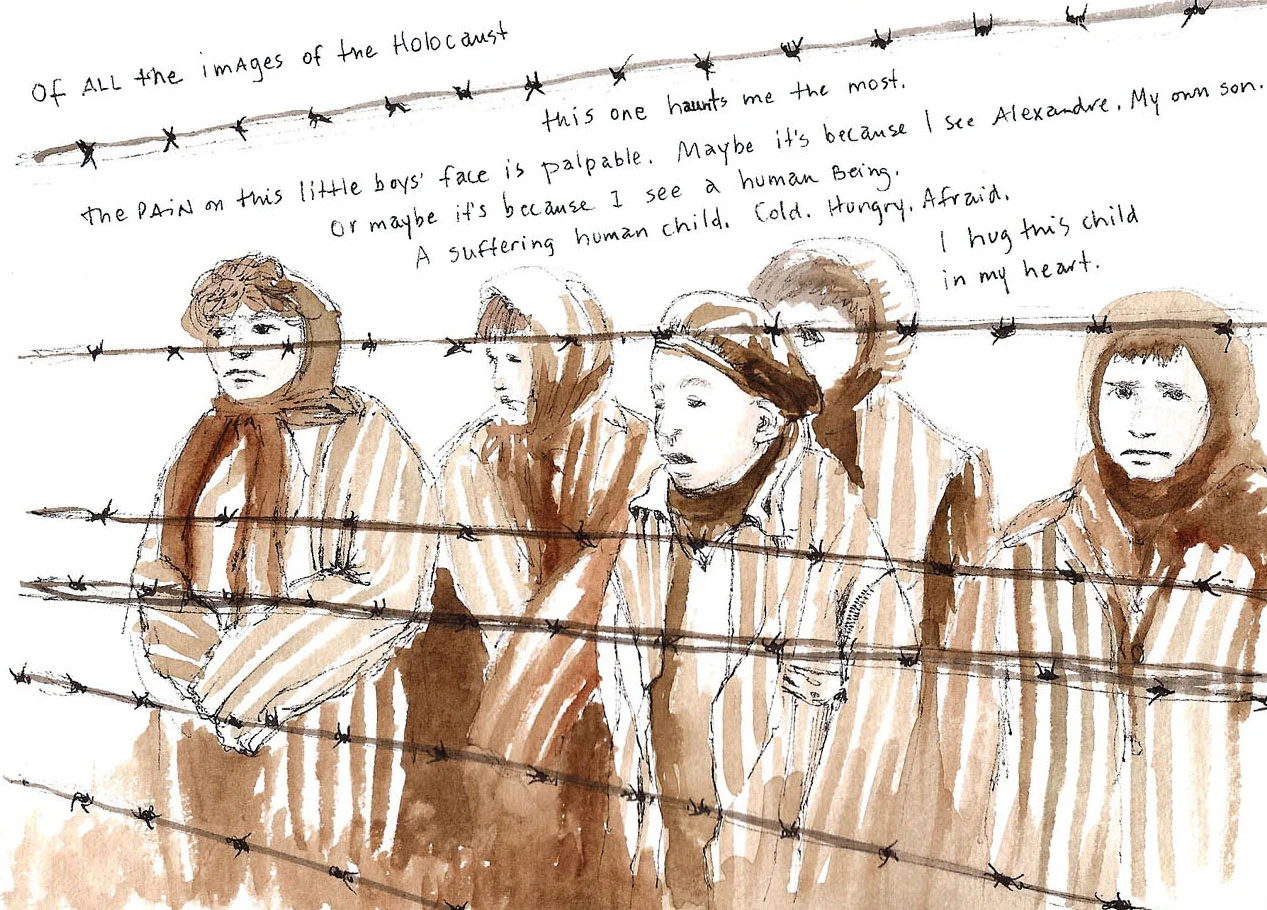 Of ALL the imAges of the Holocaust
this one haunts me the most.
the PAiN on this little boys' face is palpable. Maybe it's because I see Alexandre. My own son.
Or maybe it's because I see a human Being.
A suffering human child. Cold. Hungry. Afraid.
I hug this child
in my heart.